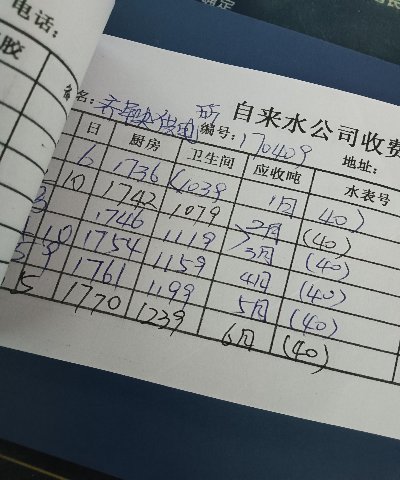 电话:
胶
自来水公司收费
名: 供电所 编号: 170409 地址:
日 厨房 卫生间 应收吨 水表号
6 1736 1039 1月 (40)
10 1742 1079 2月 (40)
3 1746 1119 3月 (40)
10 1754 1159 4月 (40)
9 1761 1199 5月 (40)
5 1770 1239 6月 (40)